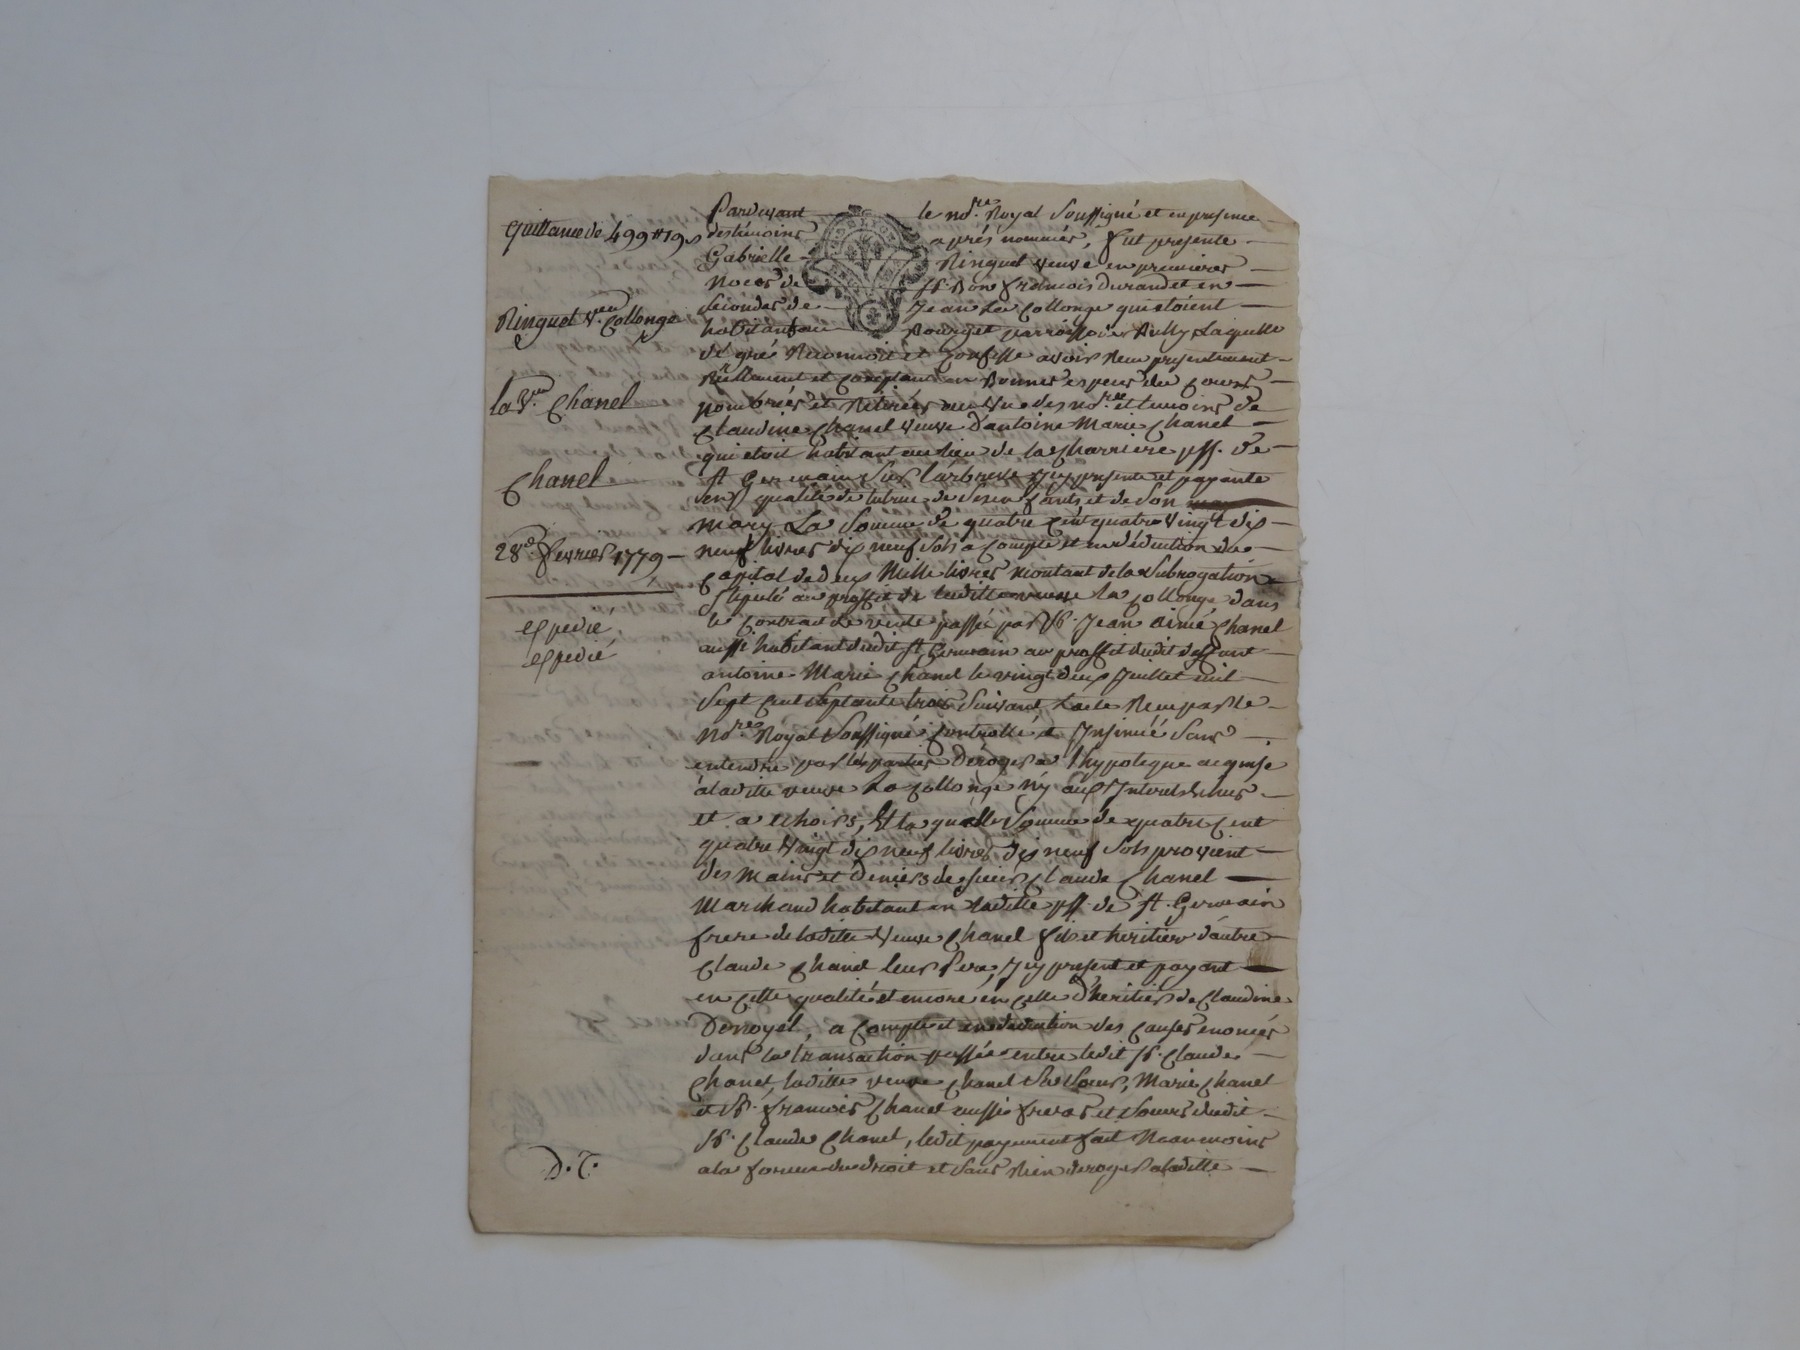 Quittance de 499# 19s
Ringuet Ve. Collonge
la Ve. Chanel
Chanel
28e. fevrier 1779
expedié
expedié
Pardevant le nore. Royal Soussigné et en presence
des témoins après nommés, fut presente
Gabrielle Ringuet veuve en premieres
Noces de Sr. Bon françois Durand et en
secondes de Jean La Collonge qui etoient
habitants au Bourg et parroisse de Bully Laquelle
de gré Reconnoit et Confesse avoir Reçu presentement
Réellement et Comptant en Bonnes especes du Cours
nombrées et Retirées au vu des nore. et temoins de
Claudine Chanel veuve d'antoine Marie Chanel
qui etoit habitant au lieu de la Charriere psse. de
St Germain sur l'arbresle Icy presente et payante
en qualité de tutrice de ses enfants et de son
mary La Somme de quatre Cent quatre vingt dix
neuf livres dix neuf sols a Compte et en déduction du
Capital de deux Mille livres montant de la Subrogation
Stipulé au proffit de laditte veuve la Collonge dans
le Contrat de vente passé par Sr. Jean aimé Chanel
aussi habitant dudit St Germain au proffit dudit deffunt
antoine Marie Chanel le vingt deux Juillet mil
Sept Cent Septante trois Suivant l'acte Reçu par le
Nore. Royal Soussigné Controllé et Insinué Sans
entendre par les parties Déroger a l'hypoteque acquise
à laditte veuve La Collonge Ny aux Interets echus
et a echoirs, Et la quelle Somme de quatre Cent
quatre vingt dix neuf livres dix neuf Sols provient
des Mains et Deniers de sieur Claude Chanel
Marchand habitant en laditte psse. de St. Germain
frere de laditte veuve Chanel fils et heritier d'autre
Claude Chanel leur Pere, Icy present et payant
en Cette qualité et encore en Celle d'heritier de Claudine
Denoyél, a Compte et en deduction des Causes enoncés
dans la transaction passée entre ledit Sr. Claude
Chanel, laditte veuve Chanel Sa Soeur, Marie Chanel
et Sr. françois Chanel aussi freres et Soeurs dudit
Sr. Claude Chanel, ledit payement fait Neanmoins
a la forme du droit et Sans Rien deroger a laditte
D. T.